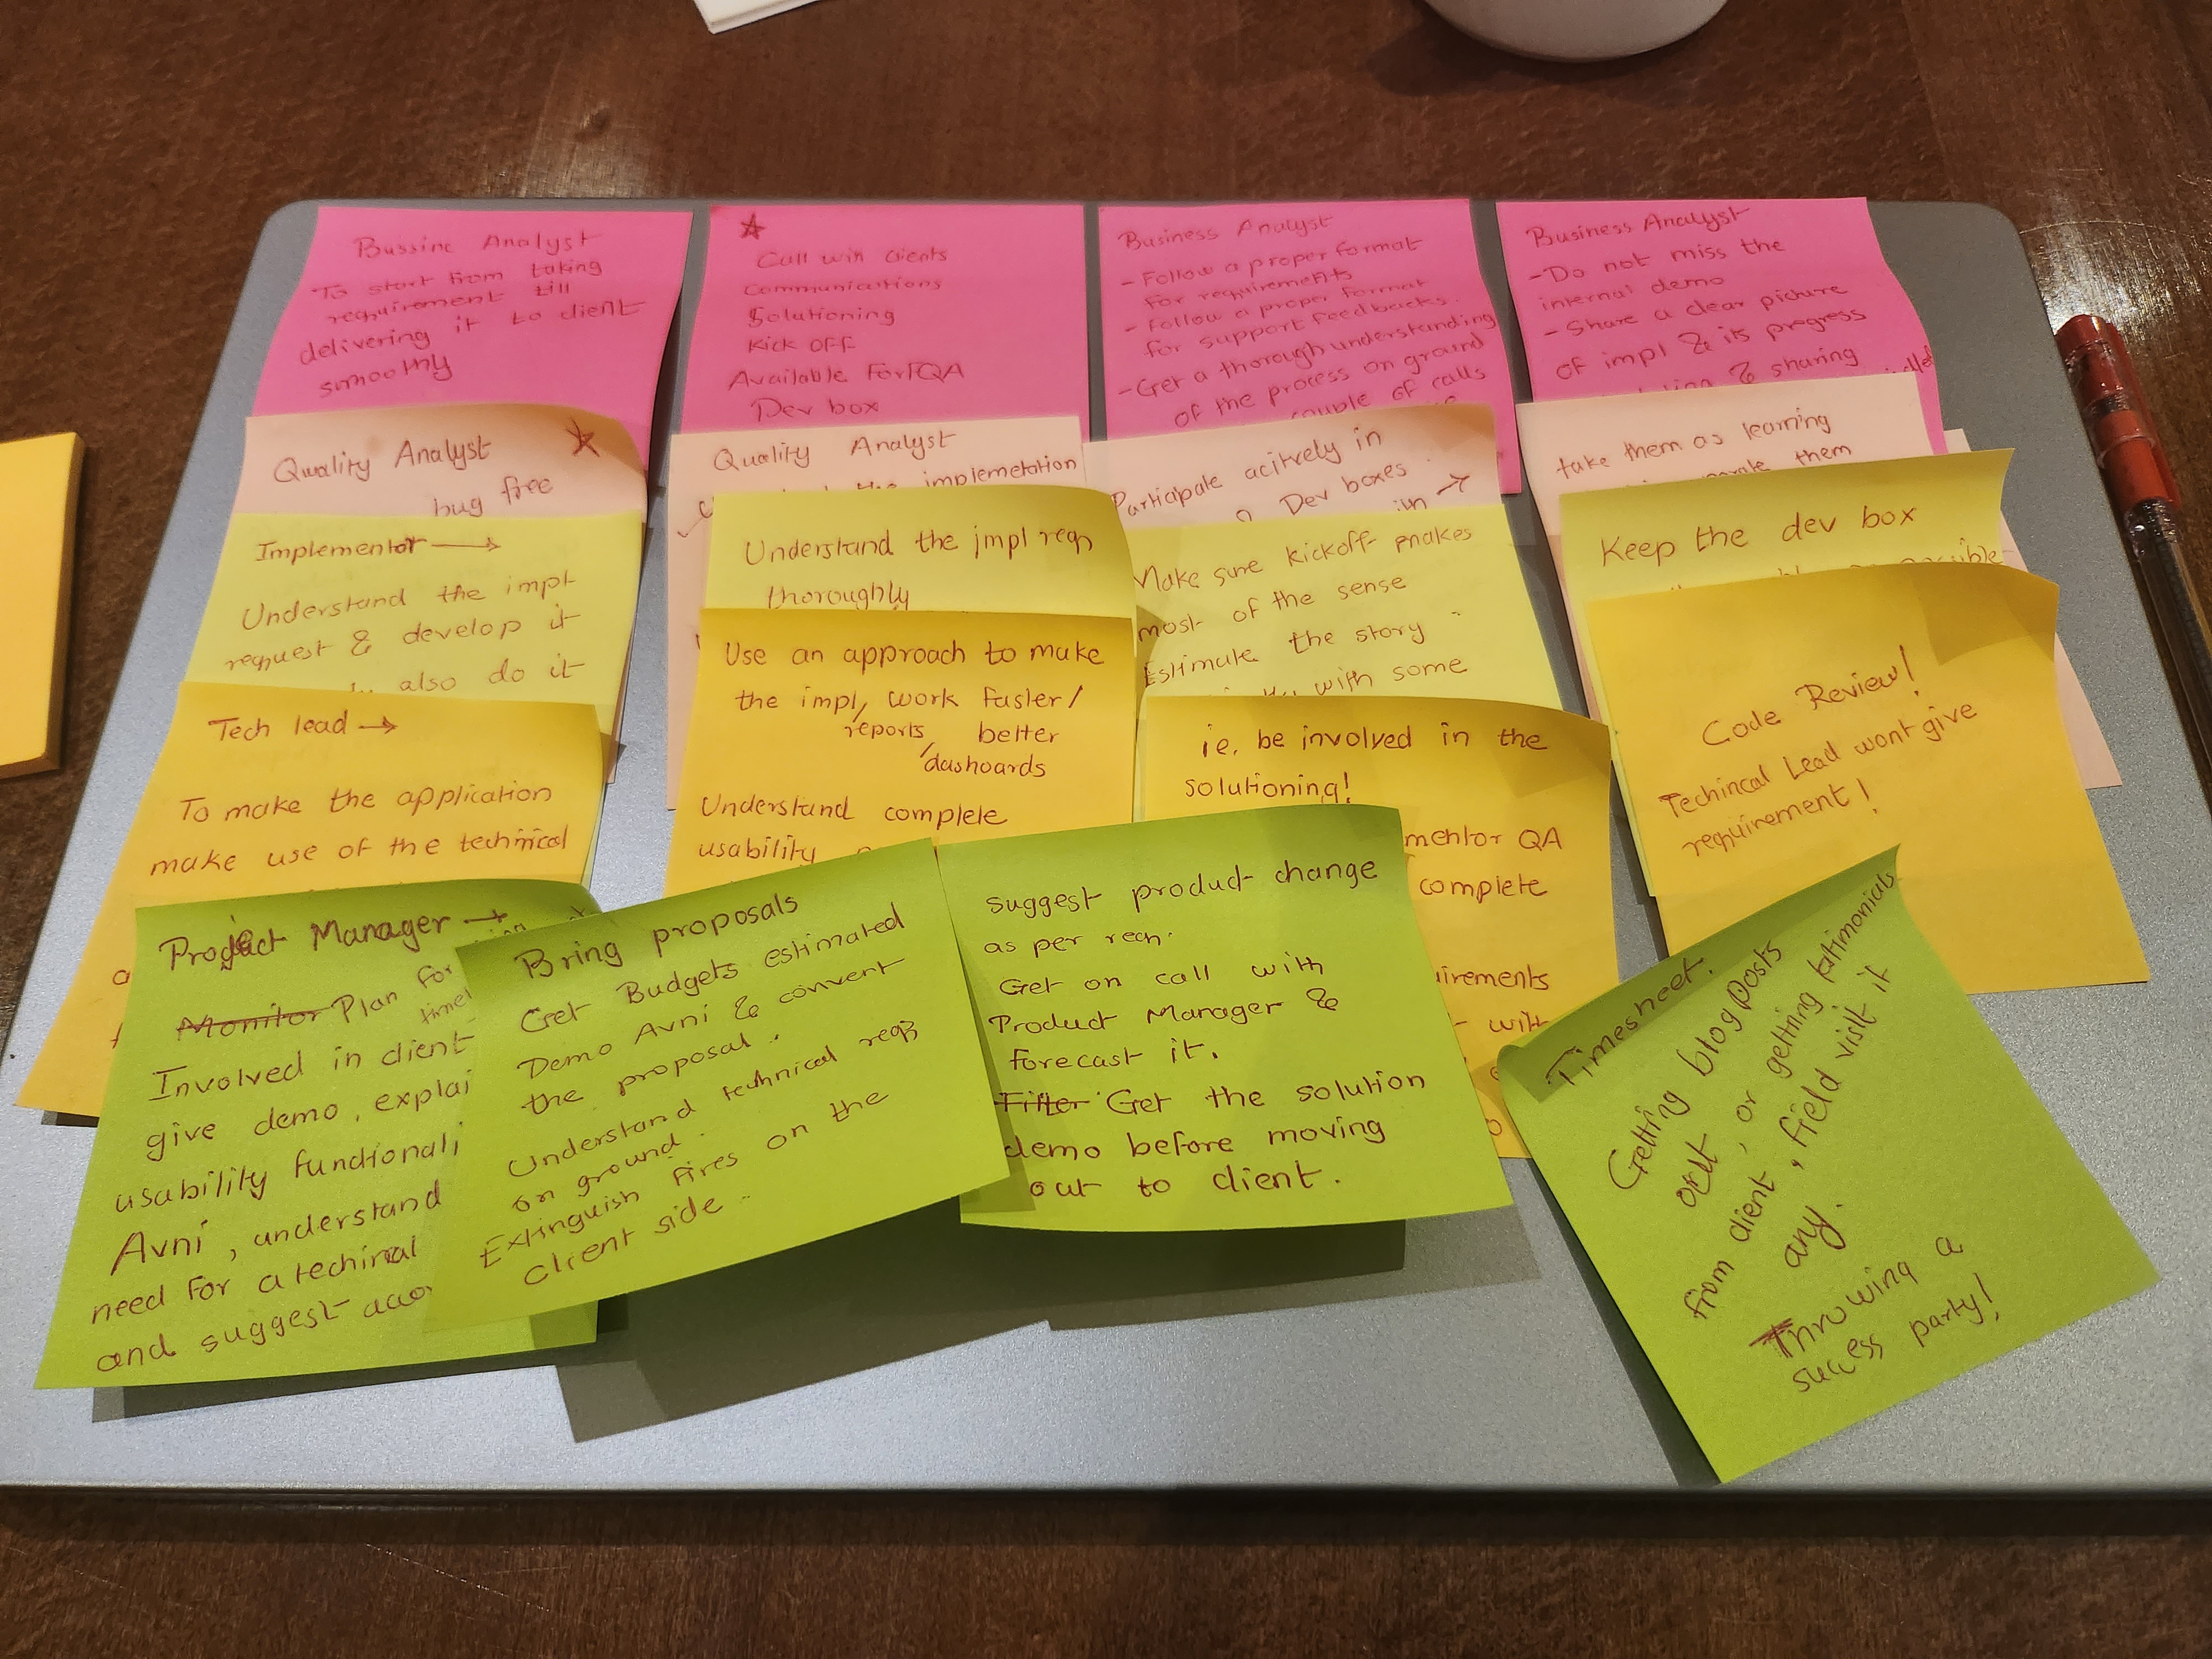 Bussinc Analyst
To start from taking
requirement till
delivering it to client
smoothly
Call with clients
communications
Solutioning
Kick off
Available For QA
Dev box
Business Analyst
- Follow a proper format
for requirements
- Follow a proper format
for support feedbacks.
- Get a thorough understanding
of the process on ground
couple of calls
Business Analyst
- Do not miss the
internal demo
- Share a clear picture
of impl & its progress
& sharing
Quality Analyst
bug free
Quality Analyst
the implemetation
Participate acitvely in
Dev boxes
in →
take them as learning
them
Implementor →
Understand the impl
request & develop it
also do it
Understand the impl reqn
thoroughly
Make sure kickoff makes
most of the sense
Estimate the story
with some
Keep the dev box
Tech lead →
To make the application
make use of the technical
Use an approach to make
the impl, work faster/
reports, better
dashoards
Understand complete
usability
ie. be involved in the
solutioning!
mentor QA
complete
uirements
with
Code Review!
Techincal Lead wont give
requirement!
Project Manager →
Monitor Plan for
timel
Involved in client
give demo, explai
usability functionali
Avni, understand
need for a techinal
and suggest acco
Bring proposals
Get Budgets estimated
Demo Avni & convert
the proposal.
Understand technical reqs
on ground.
Extinguish fires on the
client side.
suggest product change
as per reqn.
Get on call with
Product Manager &
forecast it.
Filter Get the solution
demo before moving
out to client.
Timesheet.
Getting blog posts
out, or getting tetimonials
from client, field visit if
any.
Throwing a
success party!